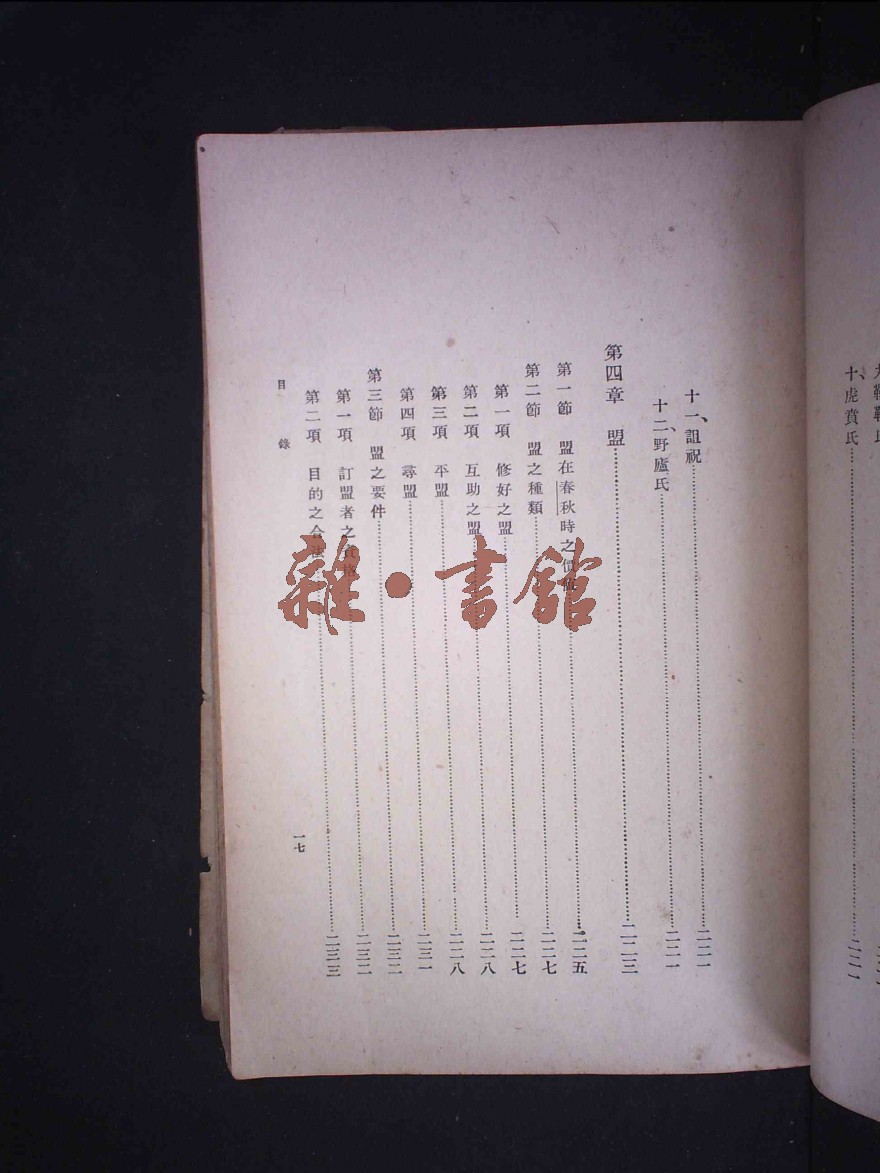 十、虎賁氏……二二一
十一、詛祝……二二一
十二、野廬氏……二二一
第四章　盟……二二三
第一節　盟在春秋時之價值……二二五
第二節　盟之種類……二二七
第一項　修好之盟……二二七
第二項　互助之盟……二二八
第三項　平盟……二二八
第四項　尋盟……二三一
第三節　盟之要件……二三二
第一項　訂盟者之資格……二三二
第二項　目的之合法……二三三
目錄
一七
雜·書館